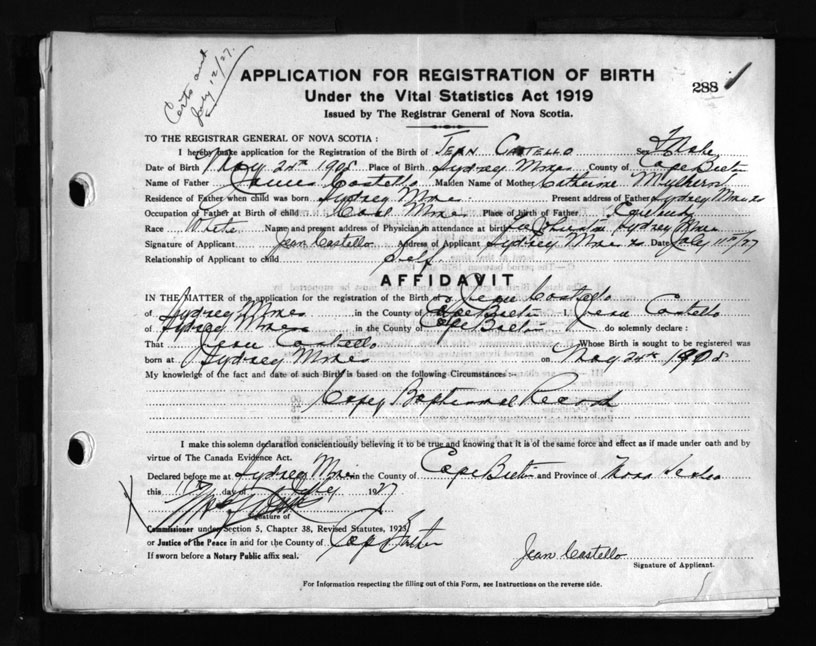 Certs and
July 12/27.
APPLICATION FOR REGISTRATION OF BIRTH
288
Under the Vital Statistics Act 1919
Issued by The Registrar General of Nova Scotia.
TO THE REGISTRAR GENERAL OF NOVA SCOTIA:
I hereby make application for the Registration of the Birth of Jean Costello Sex
Date of Birth May 24th 1908 Place of Birth Sydney Mines County of Cape Breton
Name of Father James Costello Maiden Name of Mother Catherine
Residence of Father when child was born Sydney Mines Present address of Father Sydney Mines
Occupation of Father at Birth of child Coal Mine Place of birth of Father
Race White Name and present address of Physician in attendance at birth Sydney Mines
Signature of Applicant Jean Costello Address of Applicant Sydney Mines Date July 11th/27
Relationship of Applicant to child Self
AFFIDAVIT
IN THE MATTER of the application for the registration of the Birth of Jean Costello
of Sydney Mines in the County of Cape Breton I Jean Costello
of Sydney Mines in the County of Cape Breton do solemnly declare:
That Jean Costello Whose Birth is sought to be registered was
born at Sydney Mines on May 24th 1908
My knowledge of the fact and date of such Birth is based on the following Circumstances:-
Copy Baptismal Record
I make this solemn declaration conscientiously believing it to be true and knowing that it is of the same force and effect as if made under oath and by
virtue of The Canada Evidence Act.
Declared before me at Sydney Mines in the County of Cape Breton and Province of Nova Scotia
this day of July 1927
Signature of
Commissioner under Section 5, Chapter 38, Revised Statutes, 1923
or Justice of the Peace in and for the County of Cape Breton
If sworn before a Notary Public affix seal.
Jean Costello
Signature of Applicant.
For Information respecting the filling out of this Form, see Instructions on the reverse side.